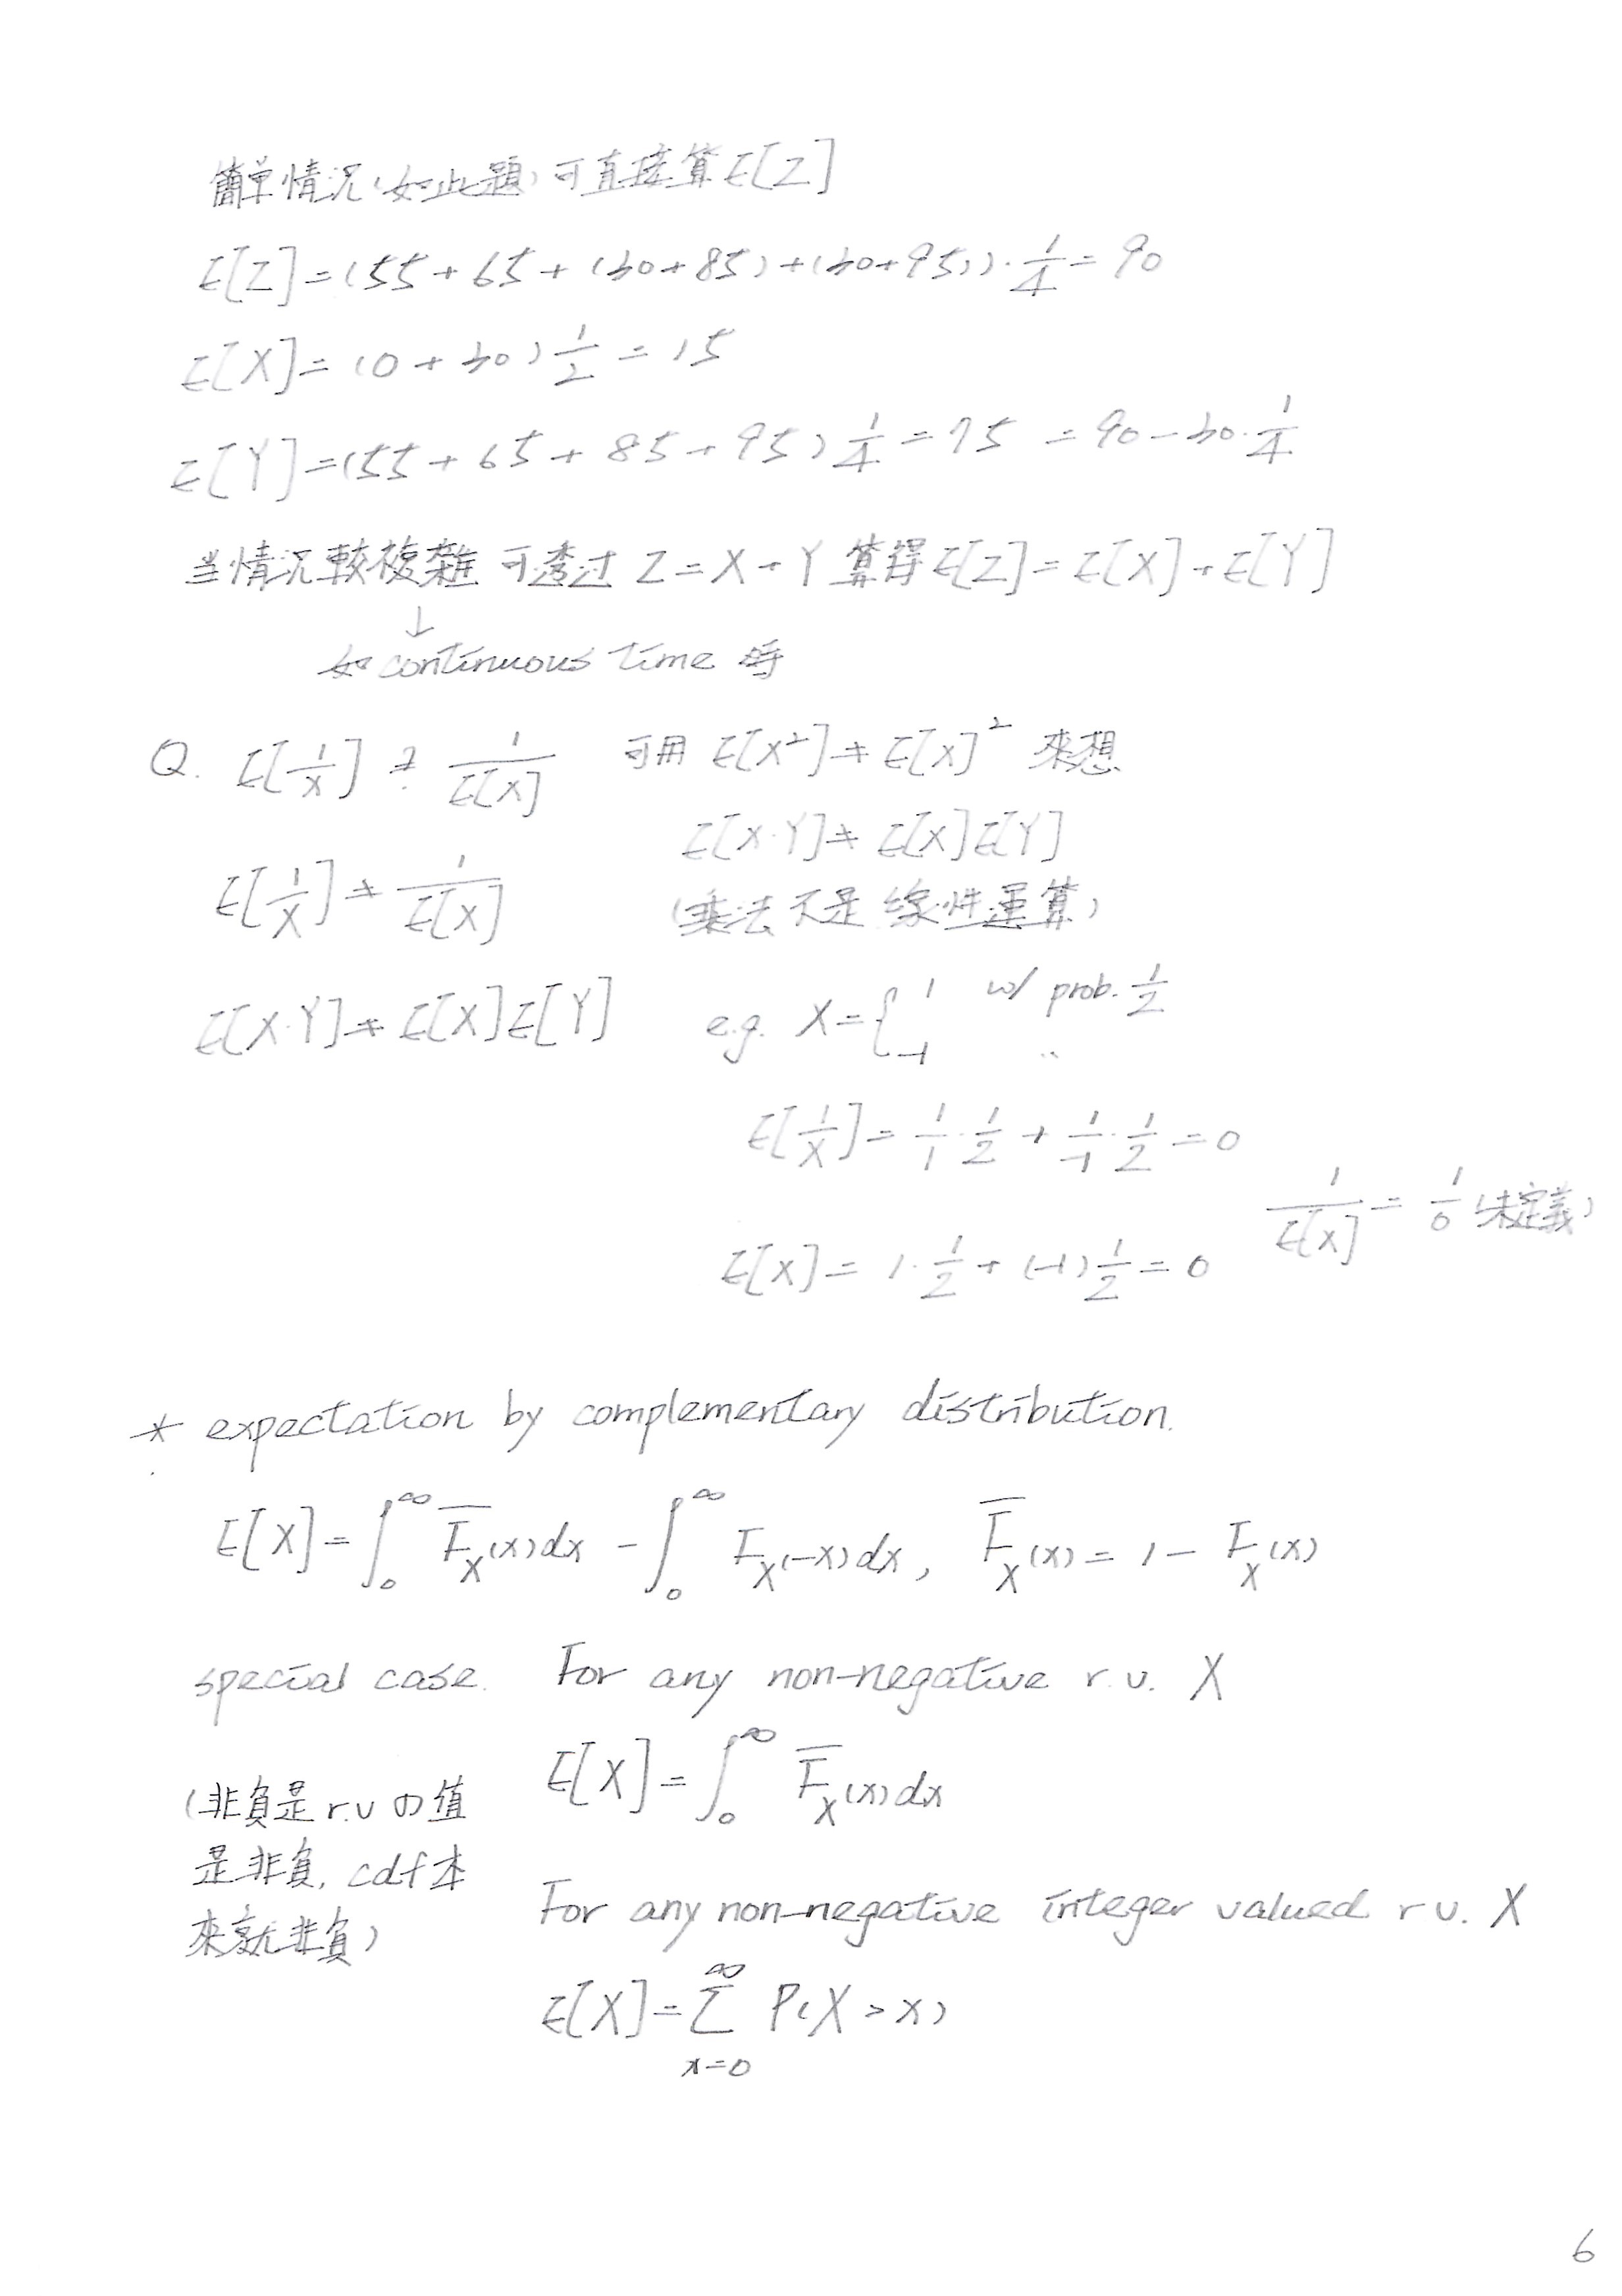 簡単情況(如此題)可直接算E[Z]
E[Z]=(55+65+(30+85)+(30+95))·1/4=90
E[X]=(0+30)1/2=15
E[Y]=(55+65+85+95)1/4=75 =90-30·1/4
当情況較複雜 可透过 Z=X+Y 算得E[Z]=E[X]+E[Y]
↓
如continuous time 時
Q. E[1/X] ≟ 1/E[X] 可用 E[X²]≠E[X]² 來想
E[X·Y]≠E[X]E[Y]
E[1/X]≠1/E[X] (乘法不是線性運算)
E[X·Y]≠E[X]E[Y] e.g. X={1 w/ prob. 1/2
-1 〃
E[1/X]=1/1·1/2+1/-1·1/2=0
1/E[X]=1/0(未定義)
E[X]=1·1/2+(-1)1/2=0
* expectation by complementary distribution.
E[X]=∫₀^∞ F̅_X(x)dx-∫₀^∞ F_X(-x)dx, F̅_X(x)=1-F_X(x)
special case. For any non-negative r.v. X
E[X]=∫₀^∞ F̅_X(x)dx
(非負是r.vの值
是非負, cdf本
來就非負)
For any non-negative integer valued r v. X
E[X]=∑_{x=0}^∞ P(X>x)
6